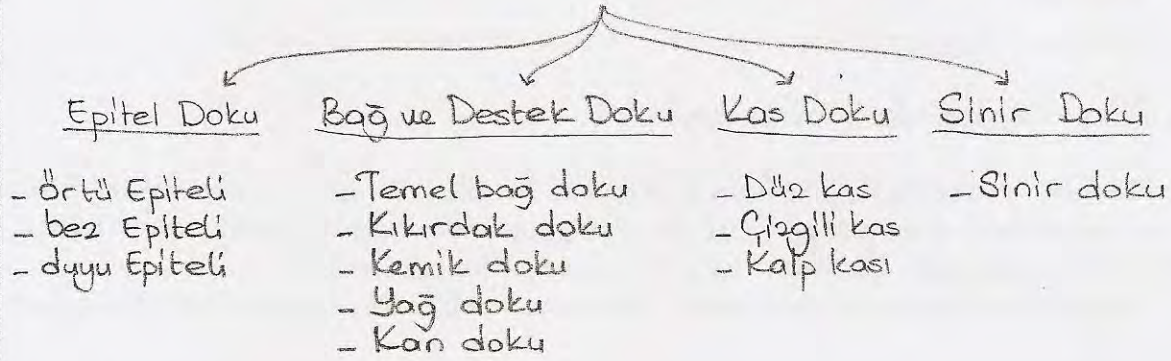 Epitel Doku
- örtü Epiteli
- bez Epiteli
- duyu Epiteli
Bağ ve Destek Doku
- Temel bağ doku
- Kıkırdak doku
- Kemik doku
- Yağ doku
- Kan doku
Kas Doku
- Düz kas
- Çizgili kas
- Kalp kası
Sinir Doku
- Sinir doku